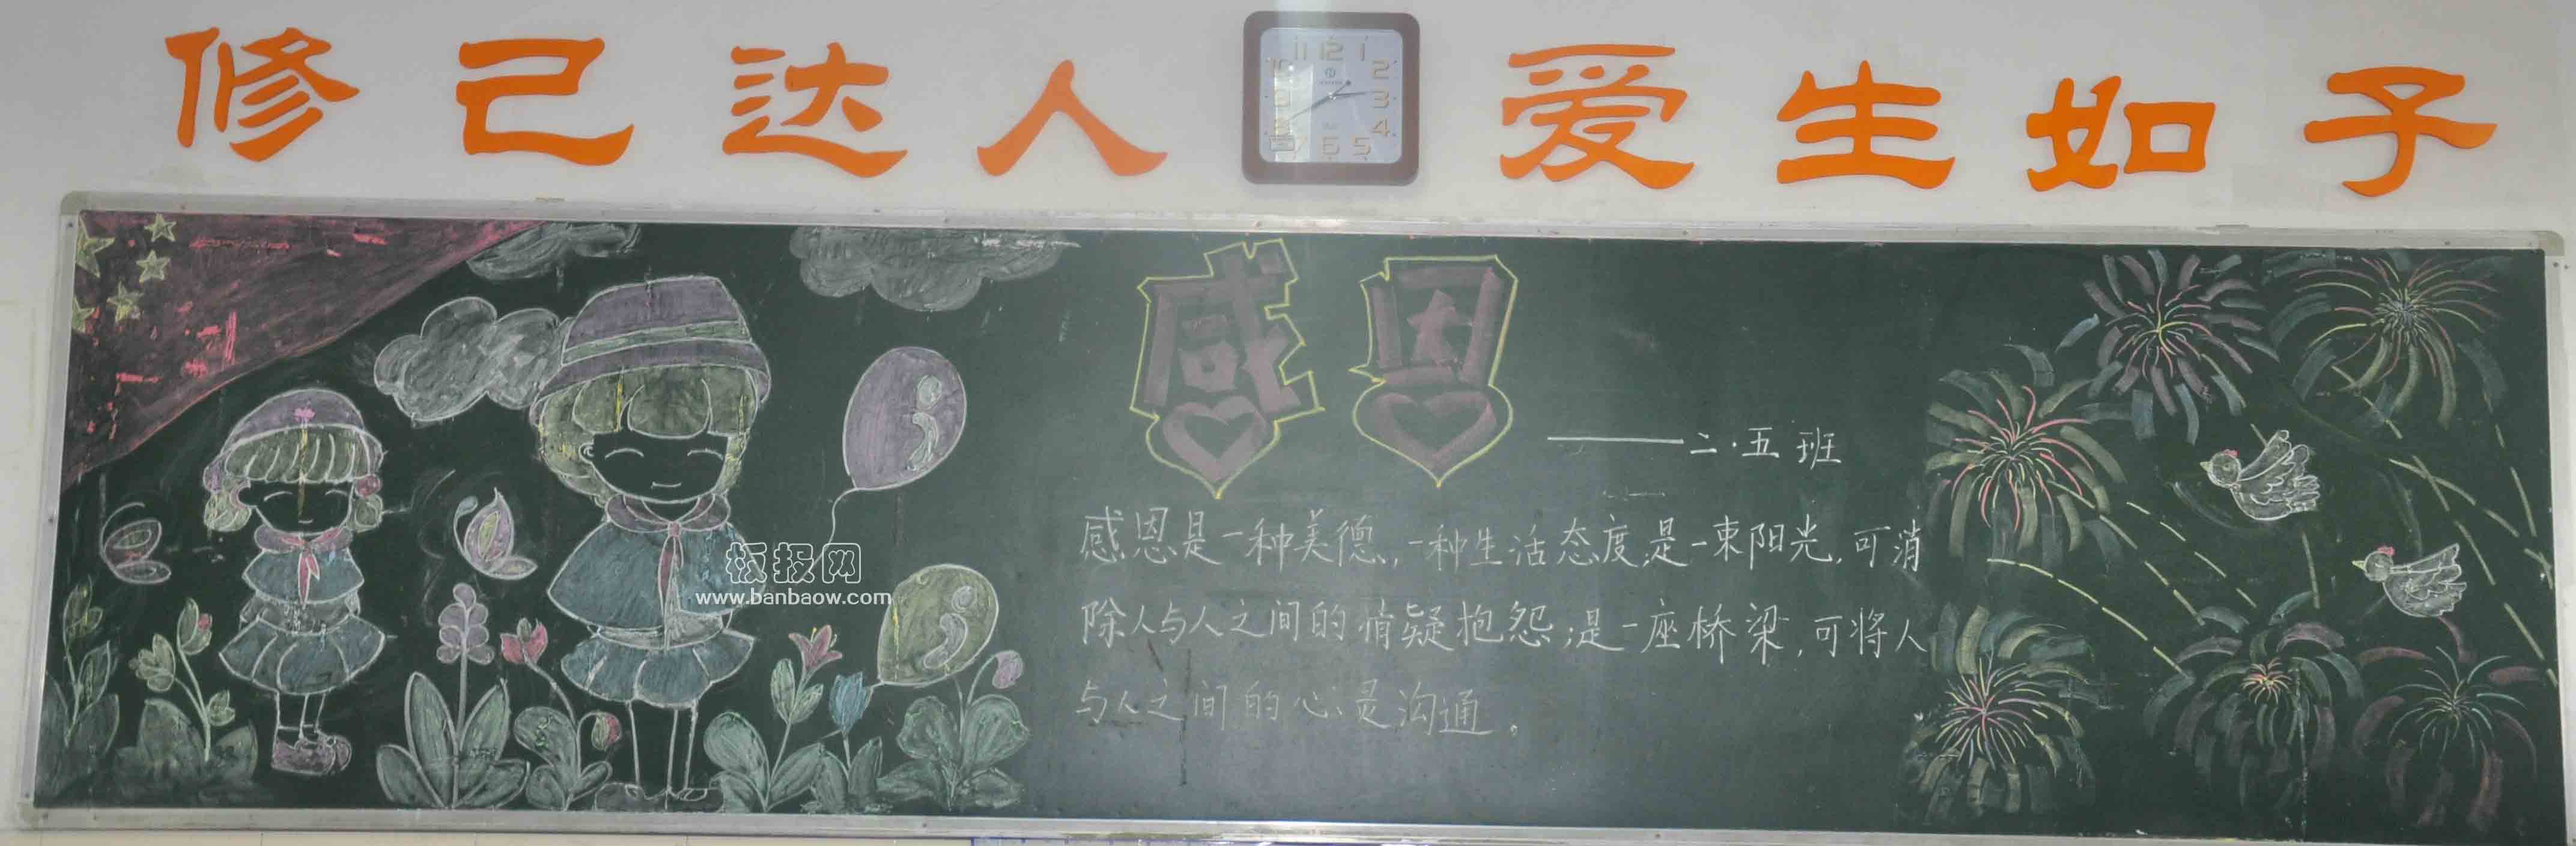 修己达人 爱生如子
11 12 1
2
3
4
5
6
感恩
——二·五班
感恩是一种美德,一种生活态度;是一束阳光,可消
除人与人之间的猜疑抱怨;是一座桥梁,可将人
与人之间的心灵沟通。
板报网
www.banbaow.com